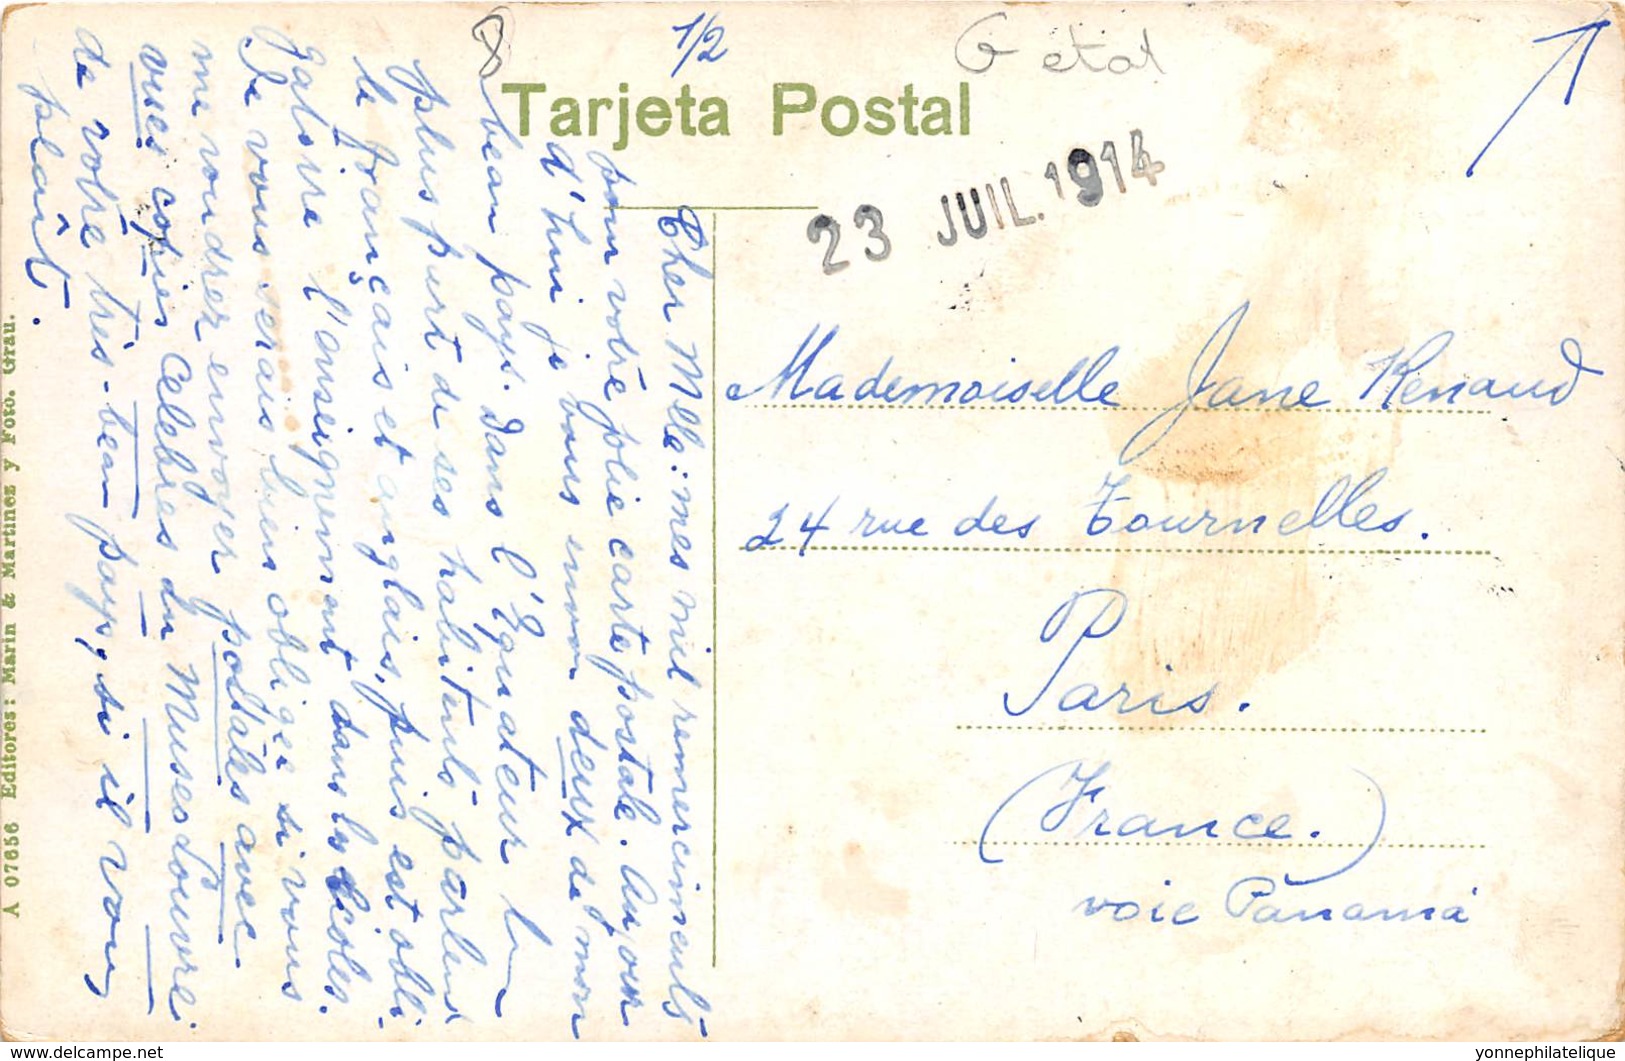 1/2
G état
Tarjeta Postal
23 JUIL. 1914
Cher Mlle: mes mil remerciments
pour votre jolie carte postale. Aujour
d'hui je vous envoi deux de mon
beau pays. Dans l'Equateur la
plus part de ses habitents parlent
le français et anglais, puis est obli-
gatoire l'enseignement dans les écoles.
Je vous serais bien obligée si vous
me voudrez envoyer postales avec
vuses copies Celebres du Museo Louvre
de vôtre très-beau pays, si il vous
plaît.
Mademoiselle Jane Renaud
24 rue des Tournelles.
Paris.
(France.)
voie Panamá
A 07656 Editores: Marin & Martinez y Foto. Grau.
yonnephilatelique